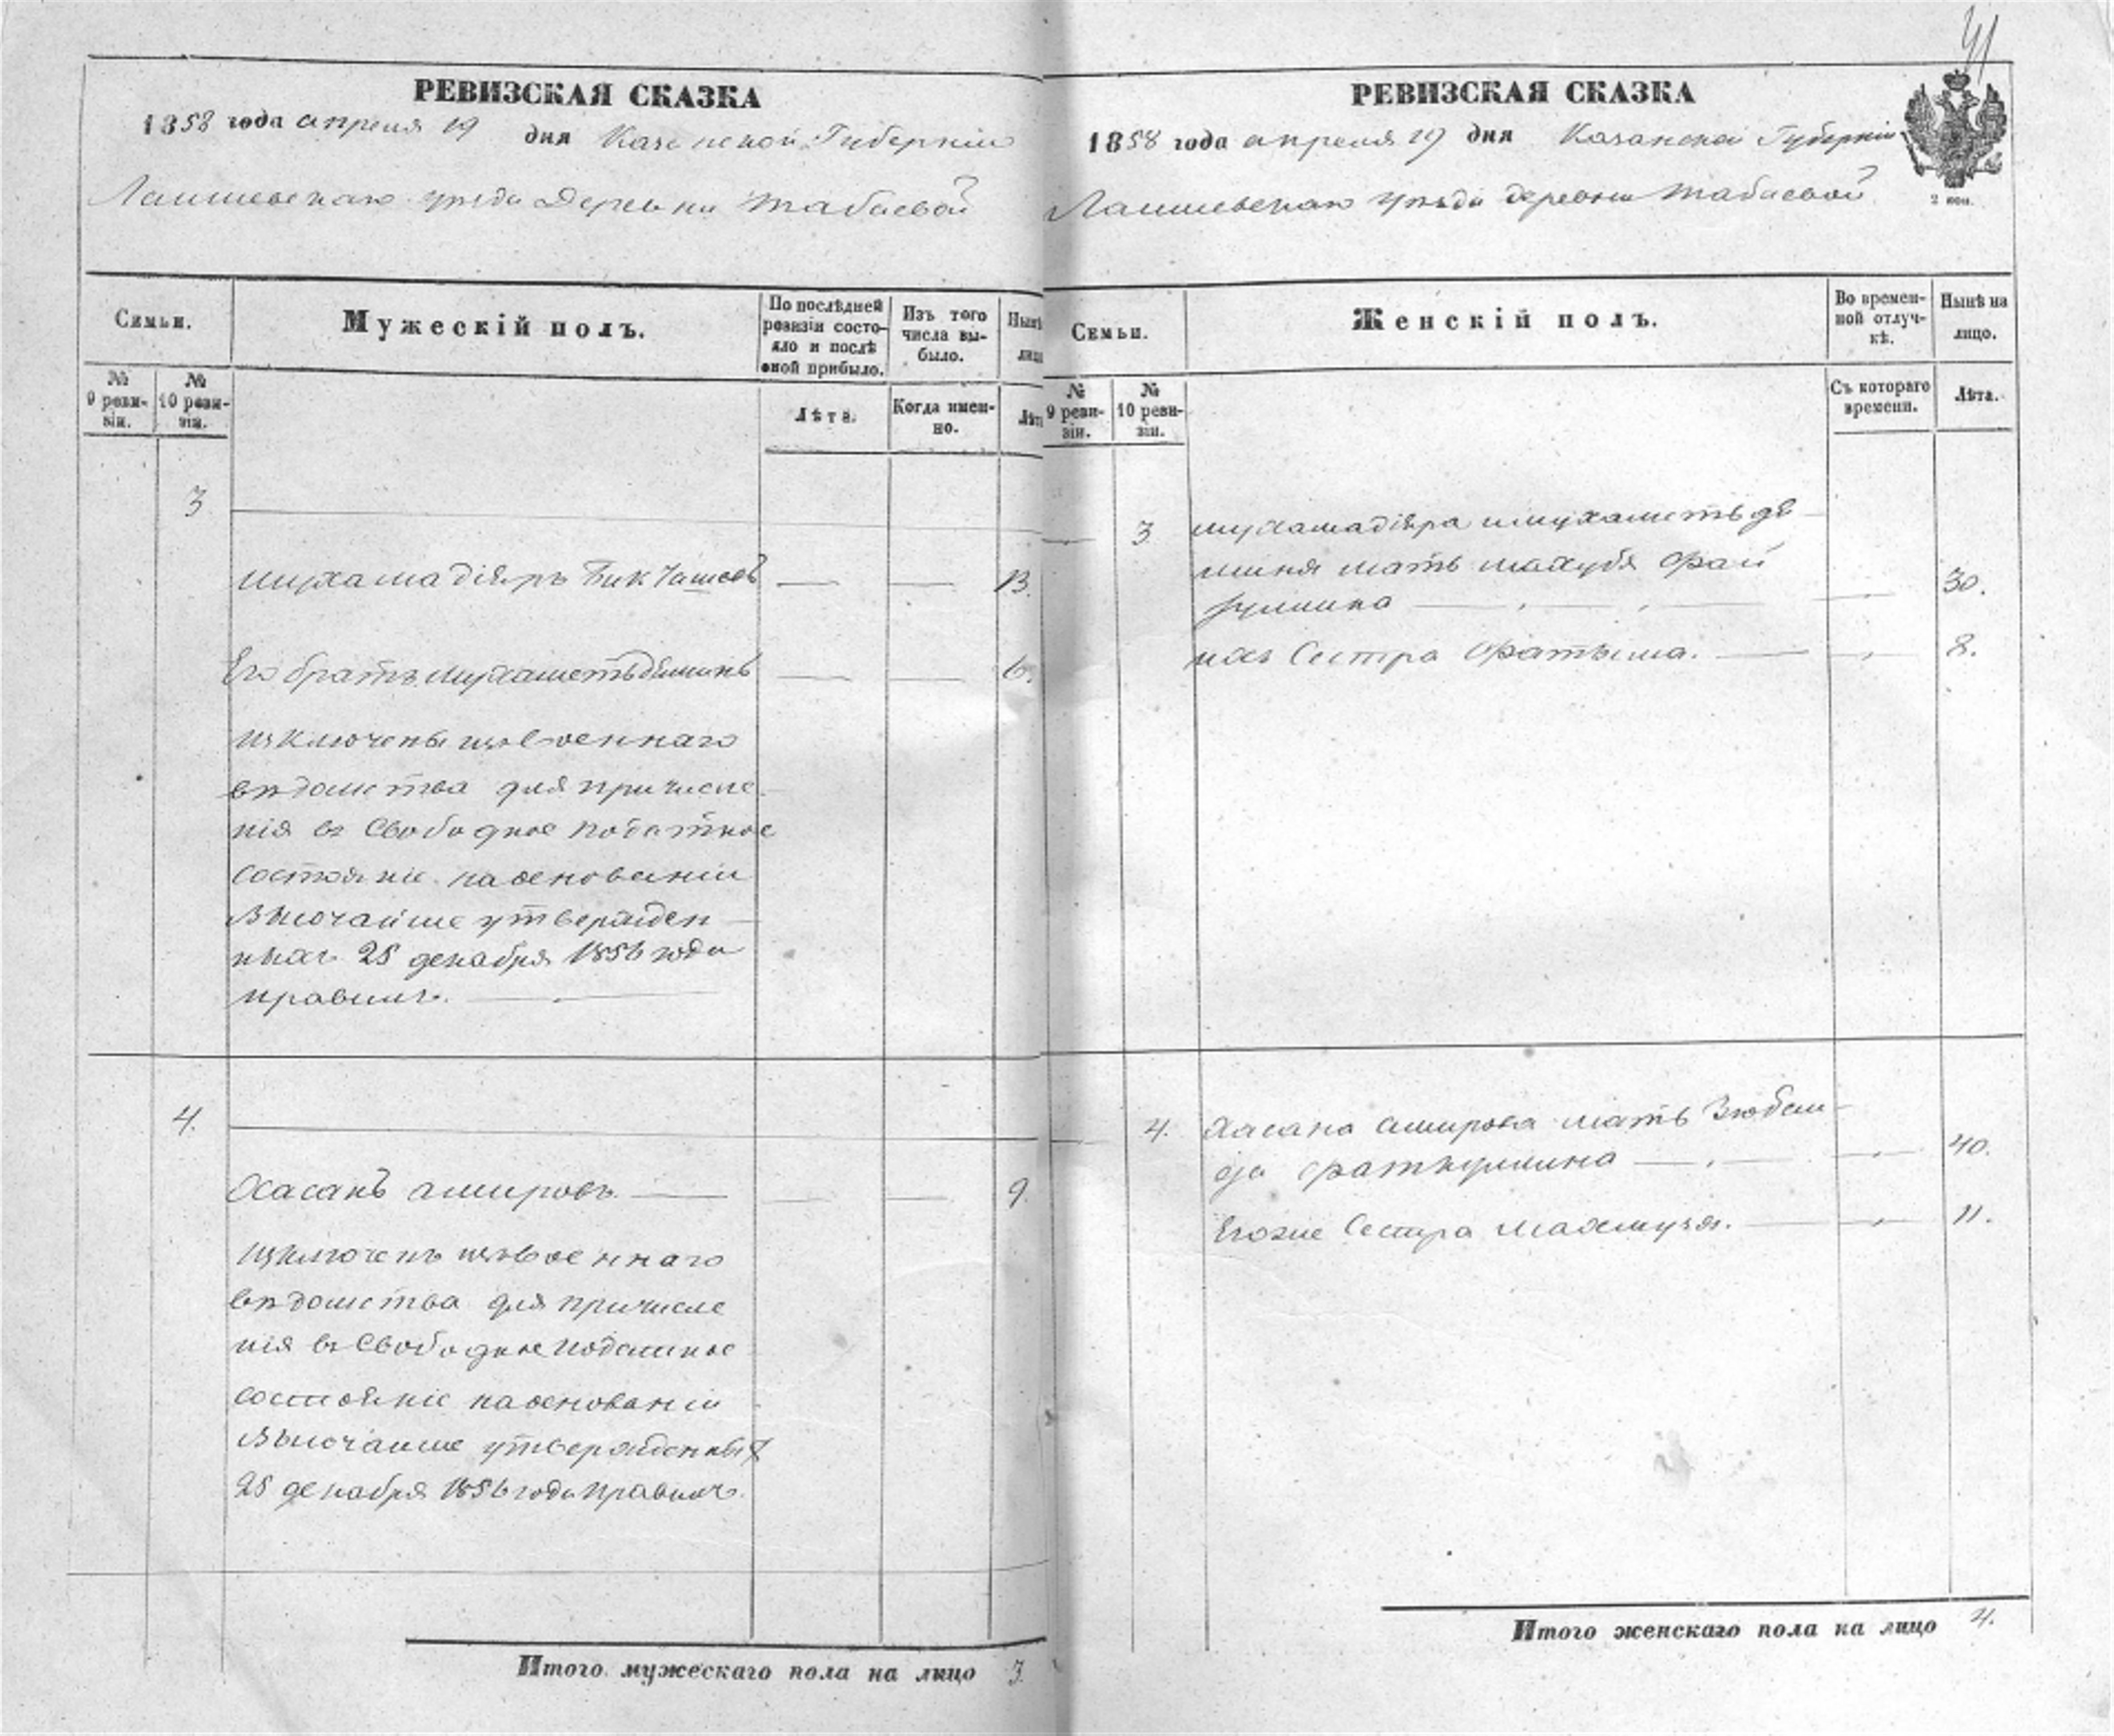 41
РЕВИЗСКАЯ СКАЗКА
1858 года апреля 19 дня Казанской Губерніи
Лаишевскаго уезда Деревни Табаевой
Семьи.
Мужескій полъ.
По послѣдней ревизіи состояло и послѣ оной прибыло.
Изъ того числа выбыло.
Нынѣ
лиц
№ 9 ревизіи.
№ 10 ревизіи.
Лѣта.
Когда именно.
Лѣт
3
Мухамадіяръ Бикчашевъ — — 13.
Его братъ Мухаметьдеминъ — — 6.
изключены изъ военнаго
вѣдомства для причисле
нія въ Свободное податное
состояніе на основаніи
Высочайше утвержден
ныхъ 25 декабря 1856 года
правилъ.
4.
Хасанъ Амировъ — — — 9.
изключенъ изъ военнаго
вѣдомства для причисле
нія въ Свободное податное
состояніе на основаніи
Высочайше утвержденныхъ
25 декабря 1856 года правилъ.
Итого мужескаго пола на лицо 3.
РЕВИЗСКАЯ СКАЗКА
1858 года апреля 19 дня Казанской Губерніи
Лаишевскаго уѣзда деревни Табаевой
2 коп.
Семьи.
Женскій полъ.
Во временной отлучкѣ.
Нынѣ на лицо.
№ 9 ревизіи.
№ 10 ревизіи.
Съ котораго времени.
Лѣта.
— 3 Мухамадіяра и Мухаметьде—
миня мать Махубя Фай
зуллина — — — — 30.
ихъ Сестра Фатыма. — — 8.
— 4. Хасана Амирова мать Зюбей—
да Фаткуллина — — — 40.
Егоже Сестра Махмузя. — — 11.
Итого женскаго пола на лицо 4.